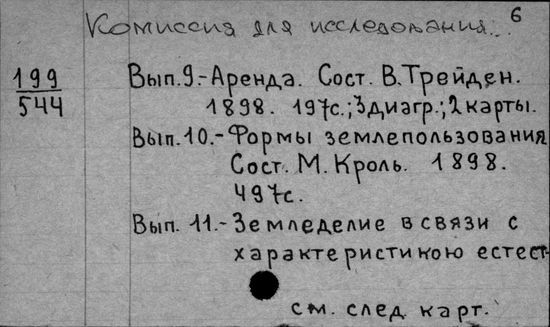 6
Комиссия для исследования...
199
544
Вып.9.-Аренда. Сост. В.Трейден.
1898. 197с.; 3диагр.; 2карты.
Вып.10.-Формы землепользования
Сост. М. Кроль. 1898.
497с.
Вып. 11.-Земледелие в связи с
характеристикою естест-
см. след. карт.